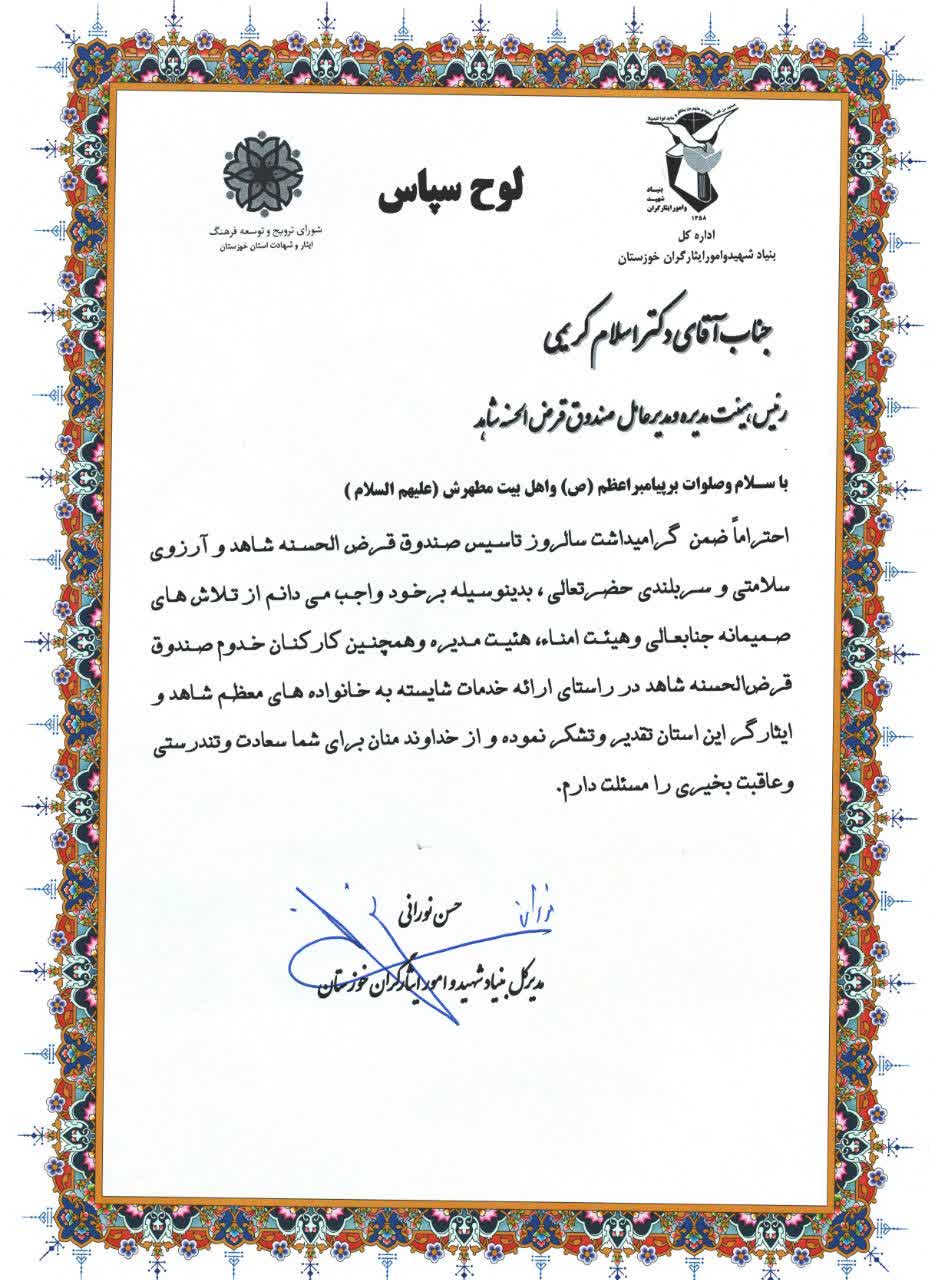 لوح سپاس
بنیاد
شهید
و امور ایثارگران
۱۳۵۸
اداره کل
بنیاد شهیدوامورایثارگران خوزستان
شورای ترویج و توسعه فرهنگ
ایثار و شهادت استان خوزستان
جناب آقای دکتر اسلام کریمی
رئیس هیئت مدیره و مدیرعامل صندوق قرض الحسنه شاهد
با سلام وصلوات برپیامبراعظم (ص) واهل بیت مطهرش (علیهم السلام )
احتراماً ضمن گرامیداشت سالروز تاسیس صندوق قرض الحسنه شاهد و آرزوی
سلامتی و سربلندی حضرتعالی ، بدینوسیله برخود واجب می دانم از تلاش های
صمیمانه جنابعالی وهیئت امناء، هئیت مدیره وهمچنین کارکنان خدوم صندوق
قرض‌الحسنه شاهد در راستای ارائه خدمات شایسته به خانواده های معظم شاهد و
ایثارگر این استان تقدیر وتشکر نموده و از خداوند منان برای شما سعادت وتندرستی
وعاقبت بخیری را مسئلت دارم.
حسن نورانی
مدیرکل بنیاد شهید و امور ایثارگران خوزستان